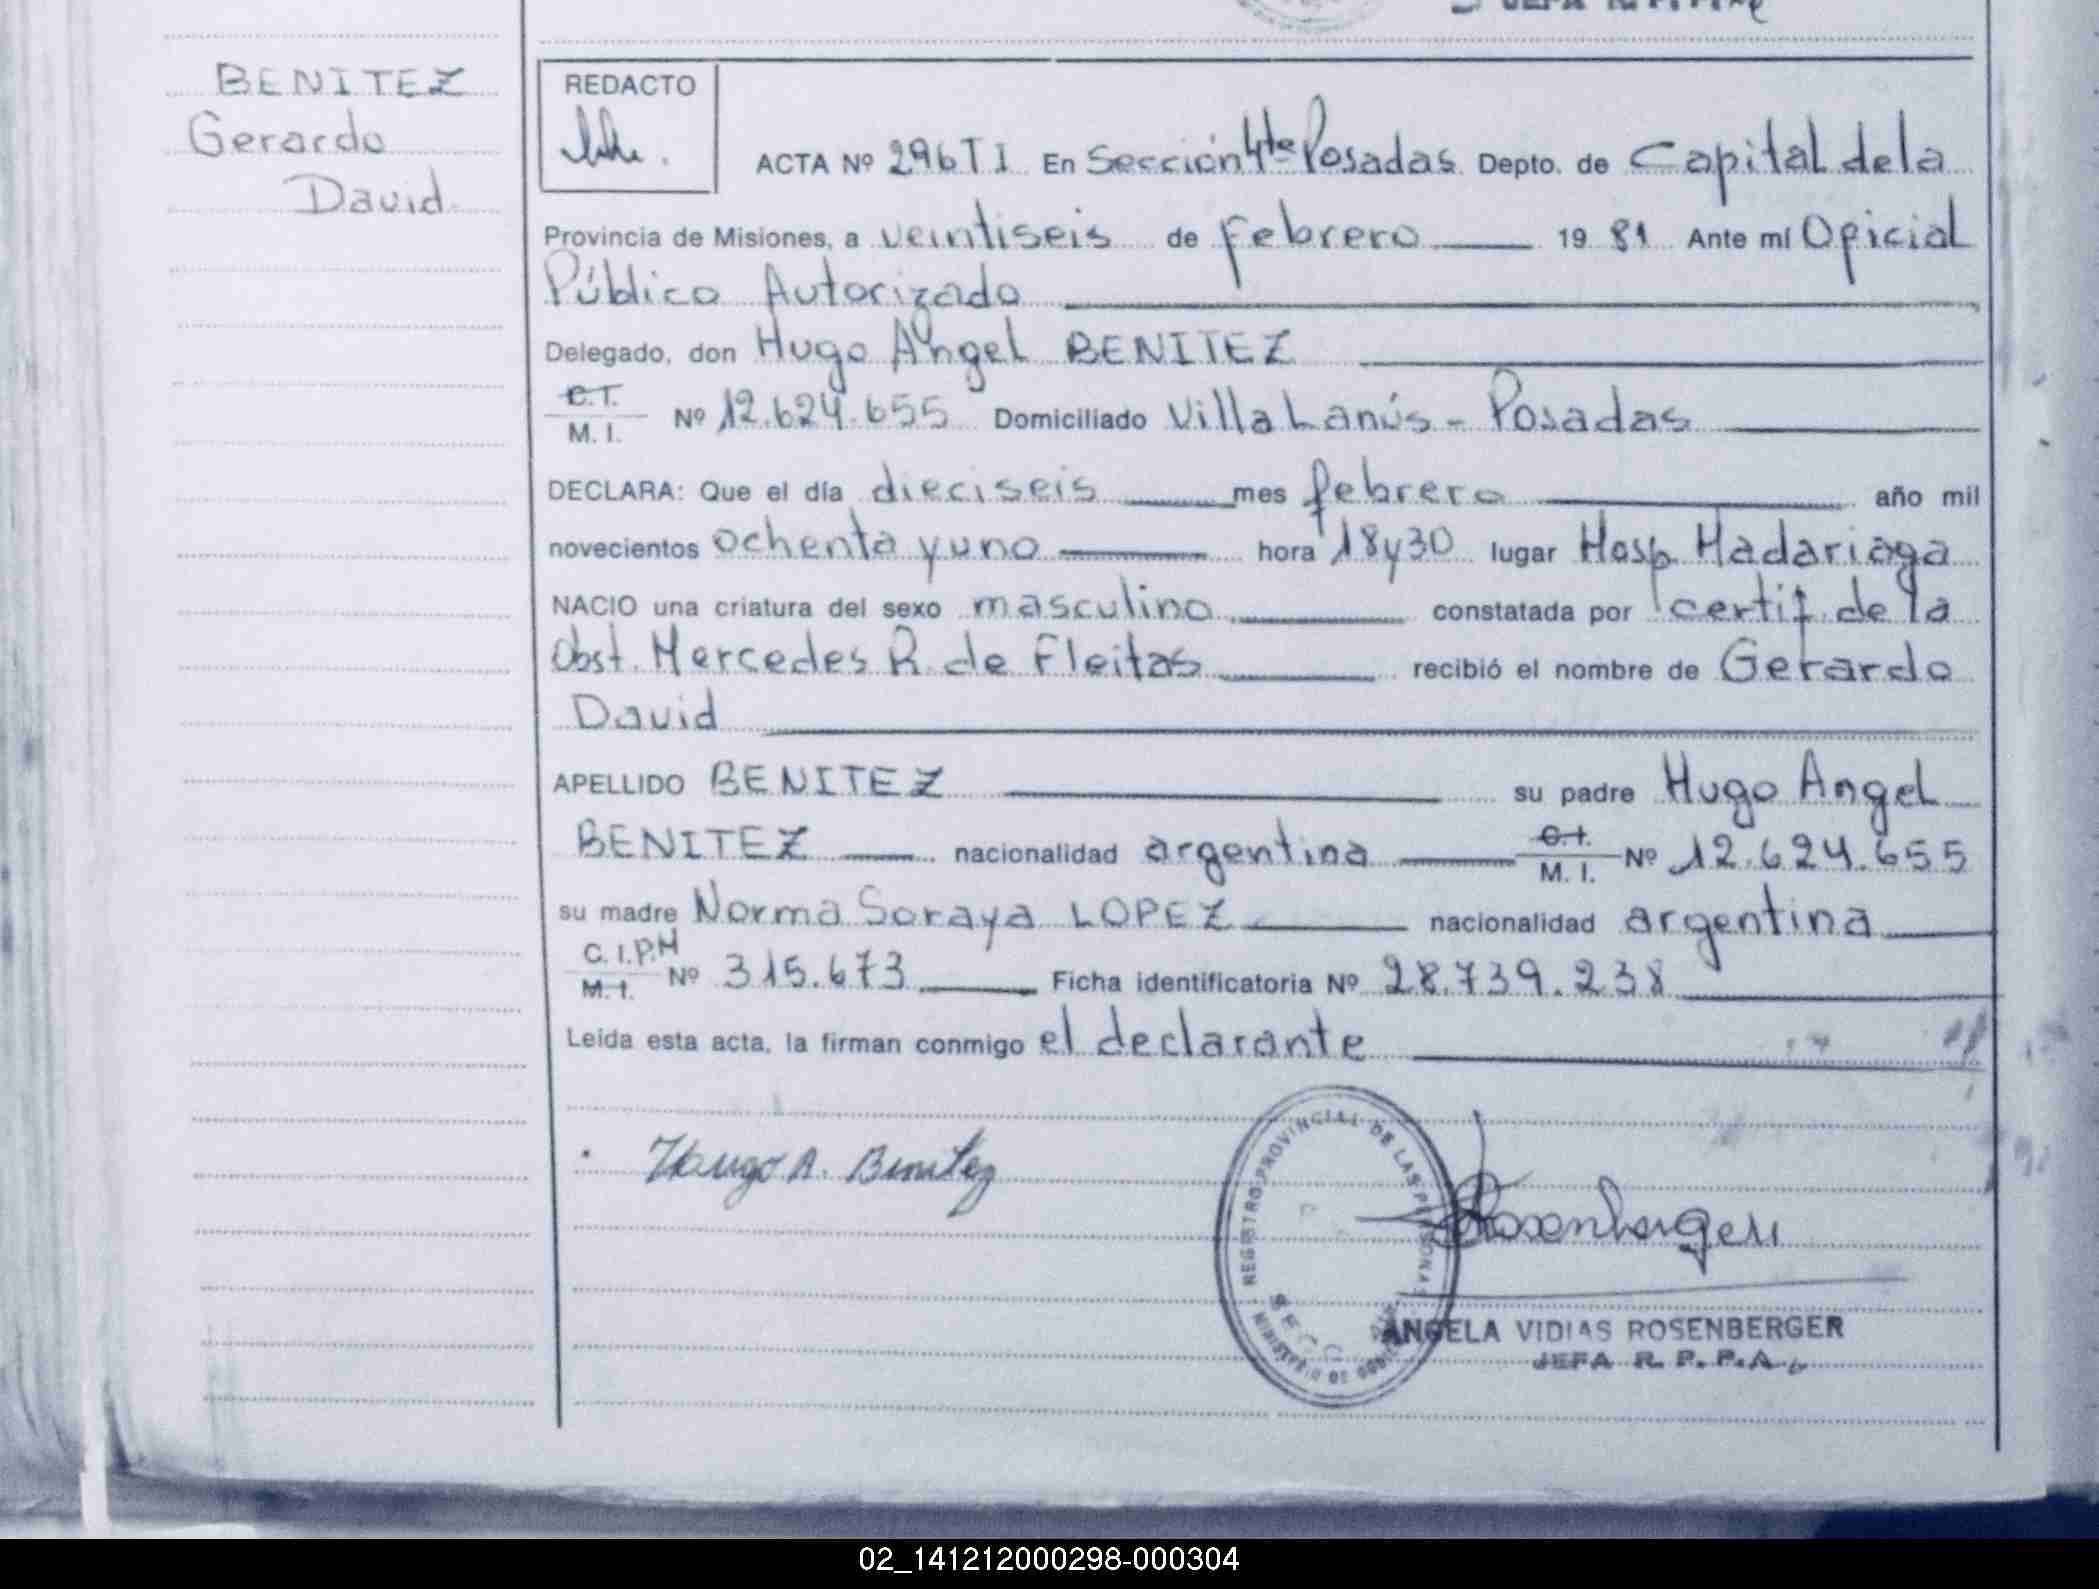 JEFA R. P. P.
BENITEZ
Gerardo
David
REDACTO
ACTA Nº 296 T I En Sección 4ta Posadas Depto. de Capital de la
Provincia de Misiones, a veintiseis de febrero 19 81 Ante mí Oficial
Público Autorizado
Delegado, don Hugo Angel BENITEZ
C.I.
M. I. Nº 12.624.655 Domiciliado Villa Lanús - Posadas
DECLARA: Que el día dieciseis mes febrero año mil
novecientos ochenta y uno hora 18 y 30 lugar Hosp Madariaga
NACIO una criatura del sexo masculino constatada por certif. de la
Obst. Mercedes R. de Fleitas recibió el nombre de Gerardo
David
APELLIDO BENITEZ su padre Hugo Angel
BENITEZ nacionalidad argentina C.I. M. I. Nº 12.624.655
su madre Norma Soraya LOPEZ nacionalidad argentina
C. I. P.M
M. I. Nº 315.673 Ficha identificatoria Nº 28.739.238
Leída esta acta, la firman conmigo el declarante
Hugo A. Benitez
REGISTRO PROVINCIAL DE LAS PERSONAS
MINISTERIO DE GOBIERNO
SECC
Rosenberger
ANGELA VIDIAS ROSENBERGER
JEFA R. P. P. A.
02_141212000298-000304